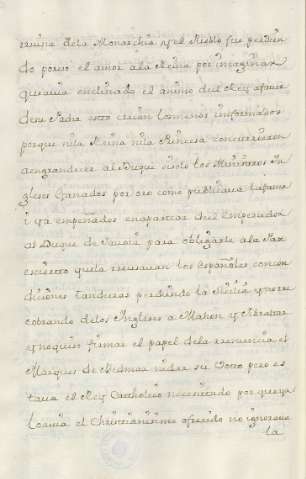 ruina dela Monarchia y el Pueblo fue perdien
do poreso el amor ala Reina por imaginar
que auia inclinado el animo del Rey afauor
de su Padre esto creian los menos informados
porque ni la Reina ni la Princesa concurrieron
aengrandecer al Duque solo los Ministros In
gleses Ganados por oro como publicaua la fama
i ya empeñados enapartar del Emperador
al Duque de Sauoia para obligarle ala Paz
escierto quela reusauan los Españoles con con
diciones tan duras perdiendo la Sicilia y no re
cobrando delos Yngleses a Mahon y Gibraltar
y no quiso firmar el papel dela renuncia el
Marques de Bedmar ni dar su Voto pero es
taua el Rey Catholico necesitado por que ya
lo auia el Christianisimo ofrecido no ignoraua
la